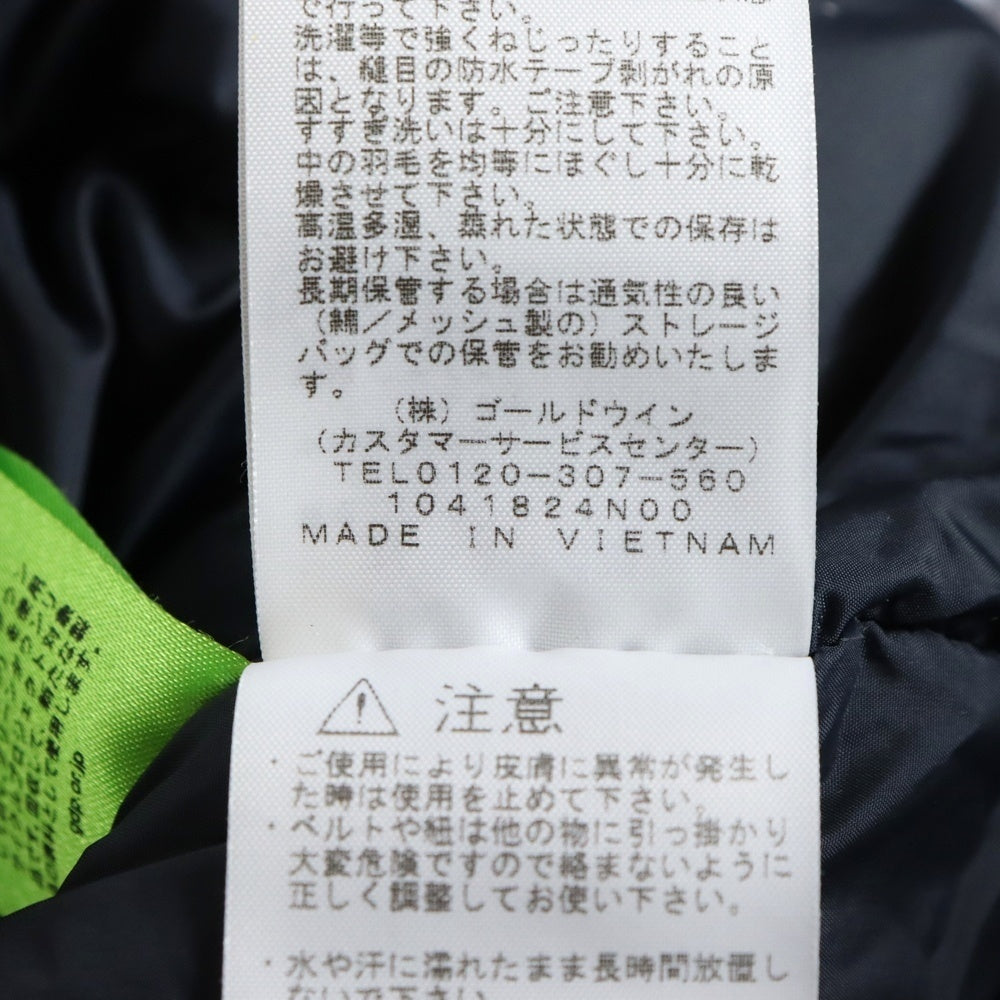 で行って下さい。
洗濯等で強くねじったりすること
は、縫目の防水テープ剥がれの原
因となります。ご注意下さい。
すすぎ洗いは十分にして下さい。
中の羽毛を均等にほぐし十分に乾
燥させて下さい。
高温多湿、蒸れた状態での保存は
お避け下さい。
長期保管する場合は通気性の良い
（綿／メッシュ製の）ストレージ
バッグでの保管をお勧めいたしま
す。
（株）ゴールドウイン
（カスタマーサービスセンター）
TEL0120-307-560
1041824N00
MADE IN VIETNAM
注意
・ご使用により皮膚に異常が発生し
た時は使用を止めて下さい。
・ベルトや紐は他の物に引っ掛かり
大変危険ですので絡まないように
正しく調整してお使い下さい。
・水や汗に濡れたまま長時間放置し
ないで下さい